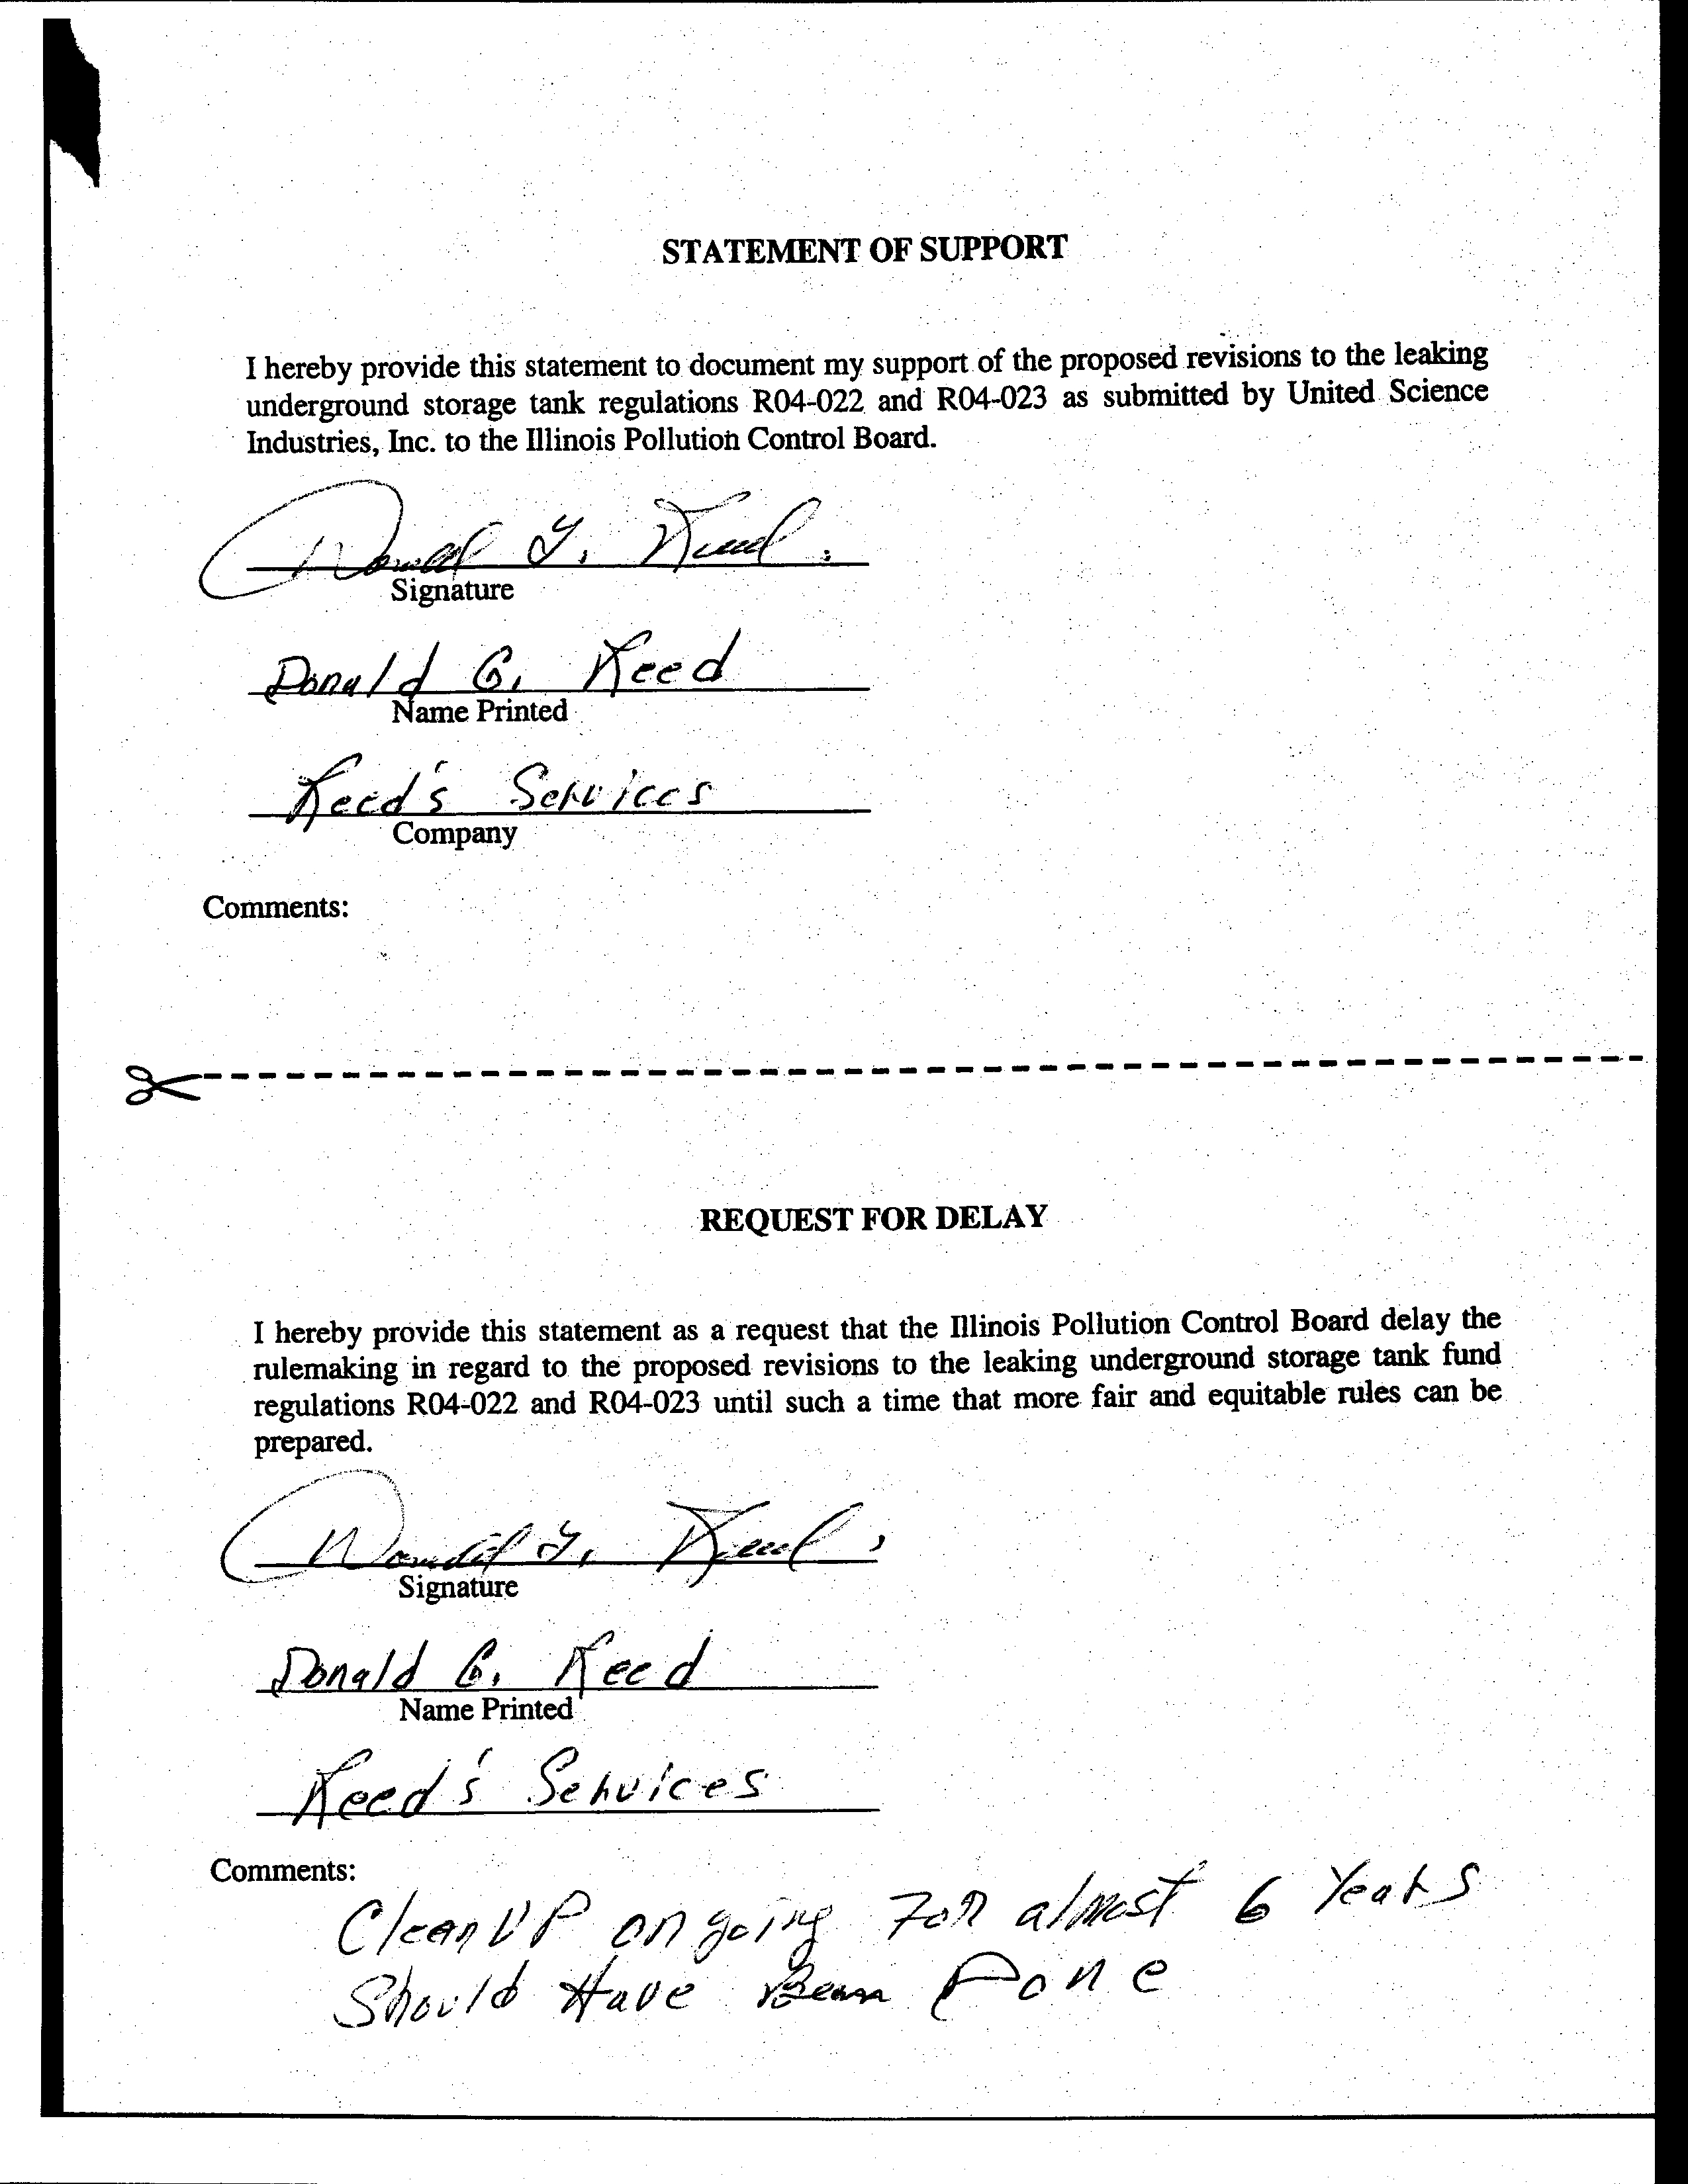 STATEMENT OF SUPPORT
I hereby provide this statement to document my support of the proposed revisions to the leaking
underground storage tank regulations R04-022 and R04-023 as submitted by United Science
Industries, Inc. to the Illinois Pollution Control Board.
Donald G. Reed
Signature
Donald G. Reed
Name Printed
Reed's Services
Company
Comments:
REQUEST FOR DELAY
I hereby provide this statement as a request that the Illinois Pollution Control Board delay the
rulemaking in regard to the proposed revisions to the leaking underground storage tank fund
regulations R04-022 and R04-023 until such a time that more fair and equitable rules can be
prepared.
Donald G. Reed
Signature
Donald G. Reed
Name Printed
Reed's Services
Comments:
CleanUP ongoing For almost 6 Years
Should Have Been Done